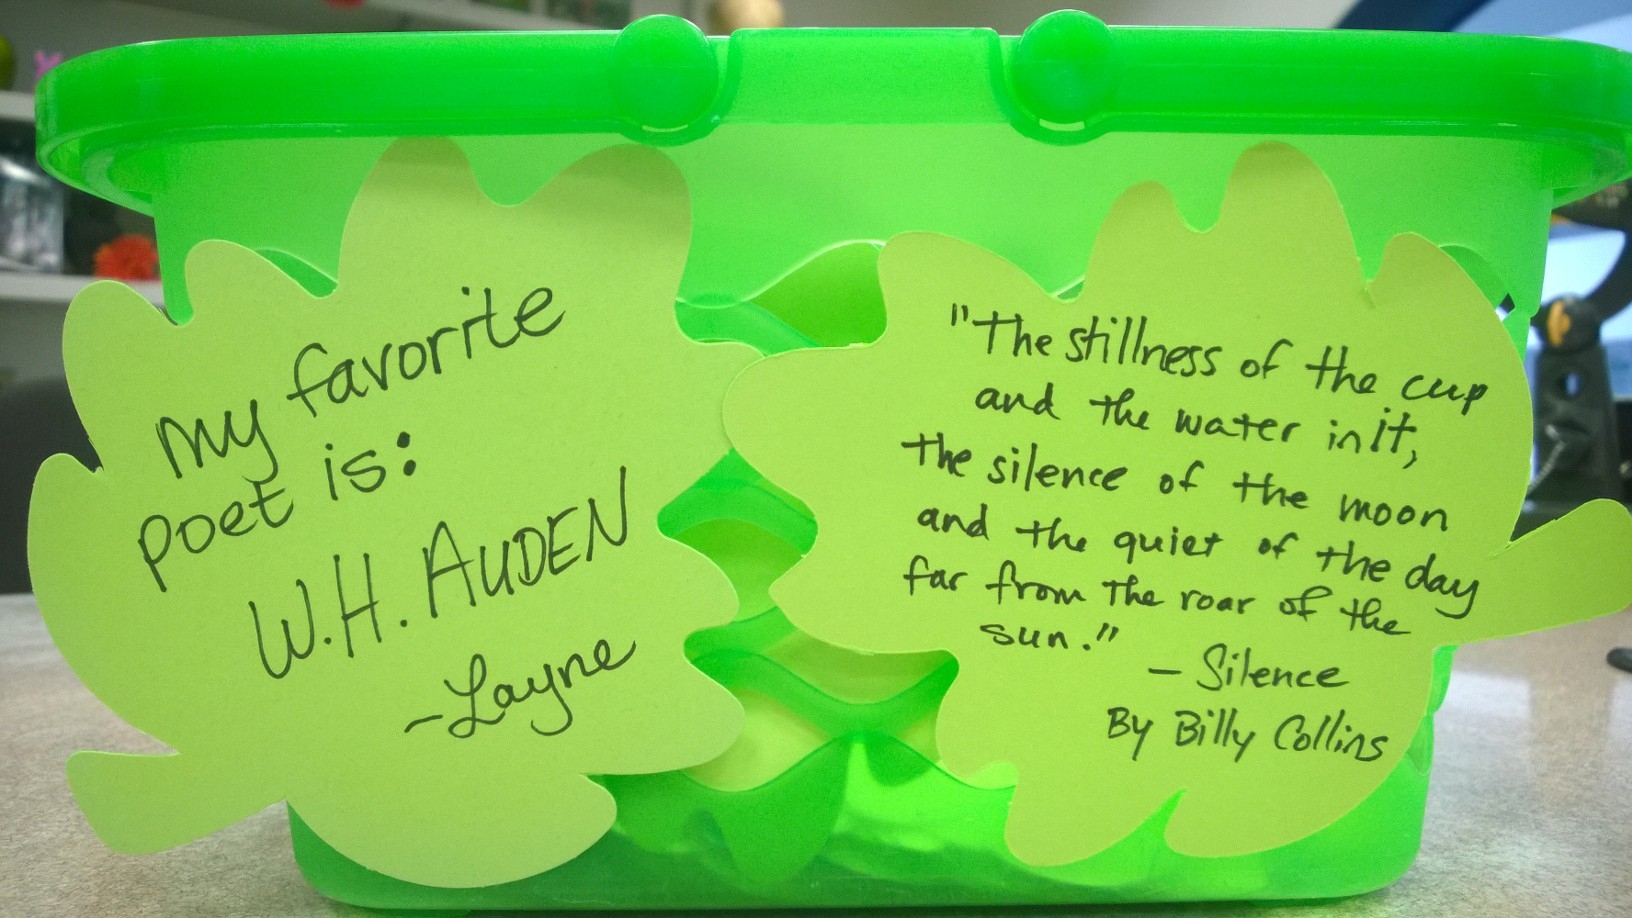 my favorite
poet is:
W.H. AUDEN
-Layne
"The stillness of the cup
and the water in it,
the silence of the moon
and the quiet of the day
far from the roar of the
sun."
- Silence
By Billy Collins